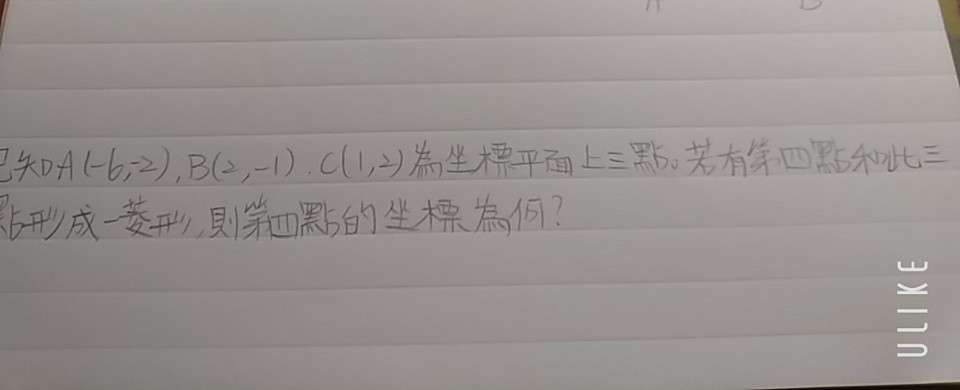 已知A(-6,-2),B(2,-1).C(1,2)為坐標平面上三點。若有第四點和此三
點形成一菱形,則第四點的坐標為何?
ULIKE